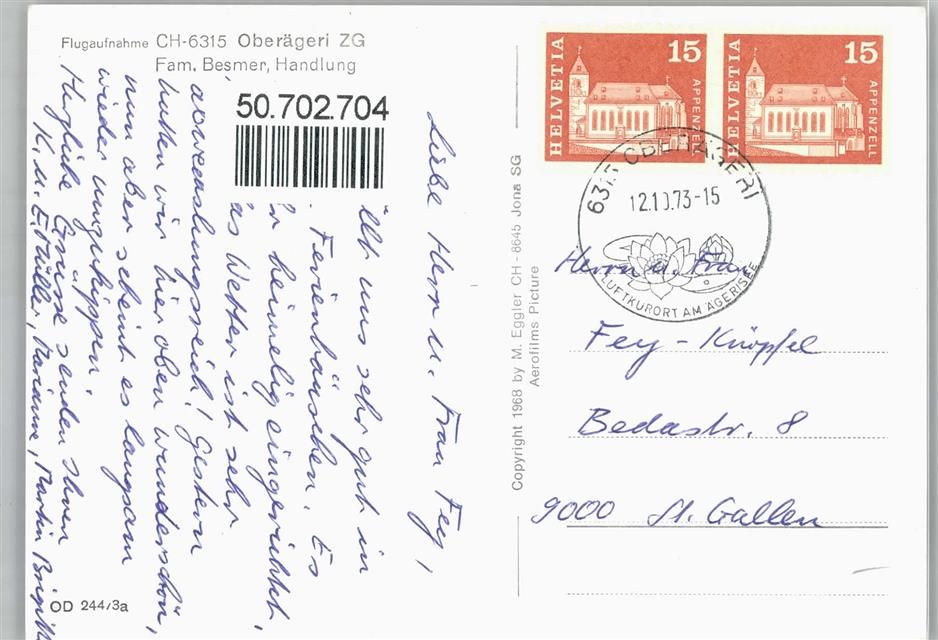 Flugaufnahme CH-6315 Oberägeri ZG
Fam. Besmer, Handlung
50.702.704
Liebe Herr u. Frau Fey,
ällt uns sehr gut im
Ferienhäuschen. Es
r heimelig eingerichtet.
as Wetter ist sehr
abwechslungsreich! Gestern
hatten wir hier oben wunderschön,
nun aber scheint es langsam
wieder umzukippen.
Herzliche Grüsse senden Ihnen
K. u. E. Müller, Marianne, Martin Brigitt
OD 244/3a
Copyright 1968 by M. Eggler CH - 8645 Jona SG
Aerofilms Picture
HELVETIA 15 APPENZELL
HELVETIA 15 APPENZELL
6315 OBERÄGERI
12.10.73-15
LUFTKURORT AM ÄGERISEE
Herrn u. Frau
Fey - Knöpfel
Bedastr. 8
9000 St. Gallen